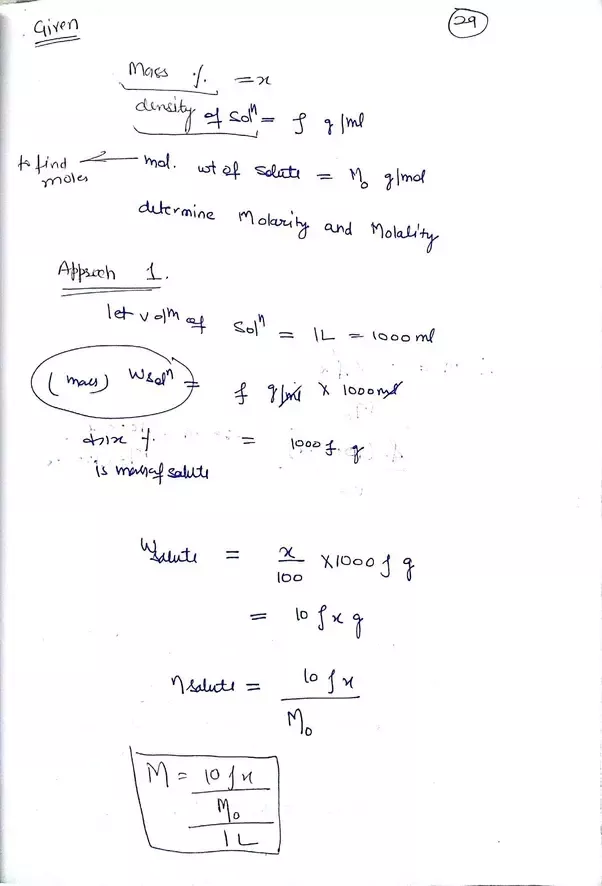 Given
29
Mass % = x
density of solⁿ = ρ g/ml
to find moles
mol. wt of solute = M₀ g/mol
determine Molarity and Molality
Appraoch 1.
let volm of solⁿ = 1L = 1000 ml
(mass) Wsolⁿ = ρ g/ml × 1000 ml
x % = 1000 ρ g
is mass of solute
Wsolute = x/100 × 1000 ρ g
= 10 ρ x g
ηsolute = 10 ρ x / M₀
M = 10 ρ x / M₀ / 1L